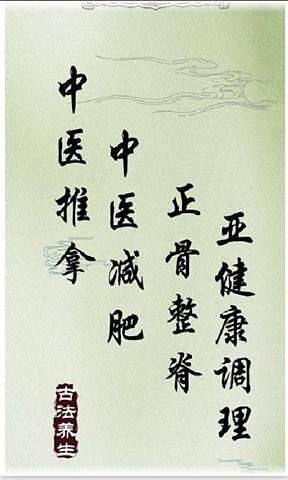 中医推拿
中医减肥
正骨整脊
亚健康调理
古法养生